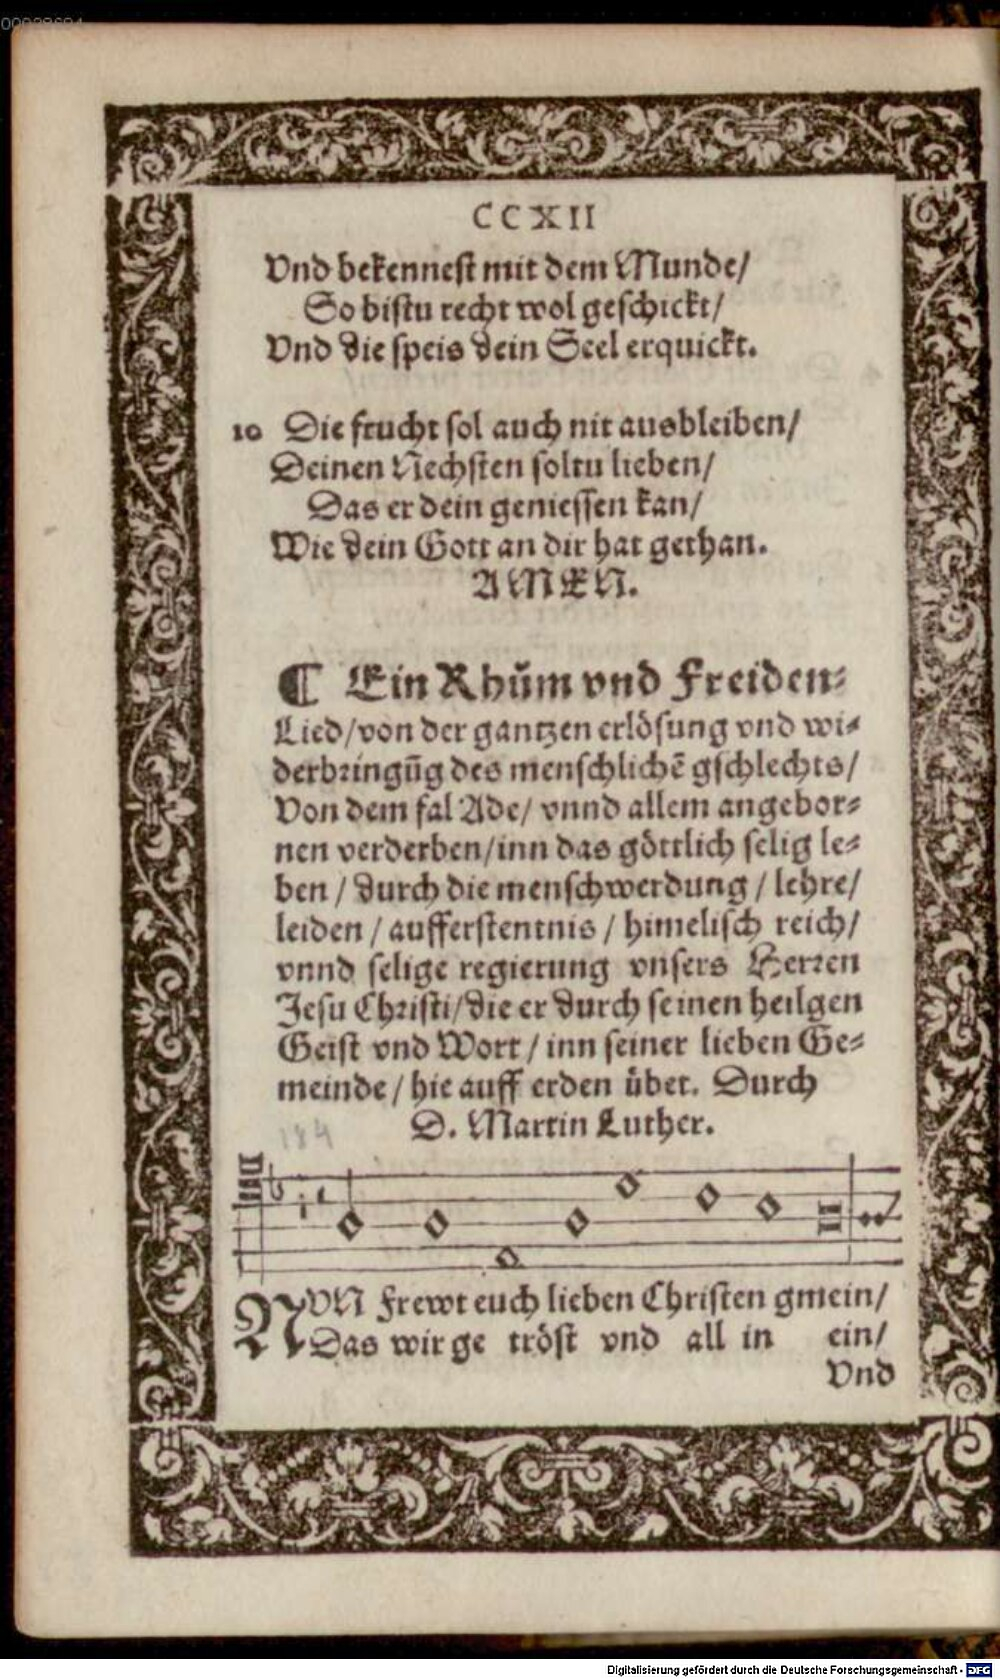 00028604
CCXII
Vnd bekennest mit dem Munde/
So bistu recht wol geschickt/
Vnd die speis dein Seel erquickt.
10 Die frucht sol auch nit ausbleiben/
Deinen Nechsten soltu lieben/
Das er dein geniessen kan/
Wie dein Gott an dir hat gethan.
AMEN.
¶ Ein Rhům vnd Freiden-
Lied/von der gantzen erlösung vnd wi-
derbringūg des menschlichē gschlechts/
Von dem fal Ade/ vnnd allem angebor-
nen verderben/inn das göttlich selig le-
ben / durch die menschwerdung / lehre/
leiden / aufferstentnis / himelisch reich/
vnnd selige regierung vnsers Herren
Jesu Christi/die er durch seinen heilgen
Geist vnd Wort / inn seiner lieben Ge-
meinde / hie auff erden übet. Durch
D. Martin Luther.
184
NVN Frewt euch lieben Christen gmein/
Das wir ge tröst vnd all in ein/
Vnd
Digitalisierung gefördert durch die Deutsche Forschungsgemeinschaft - DFG